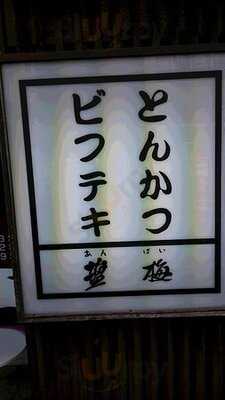 とんかつ
ビフテキ
あんばい
塩梅
sluurpy